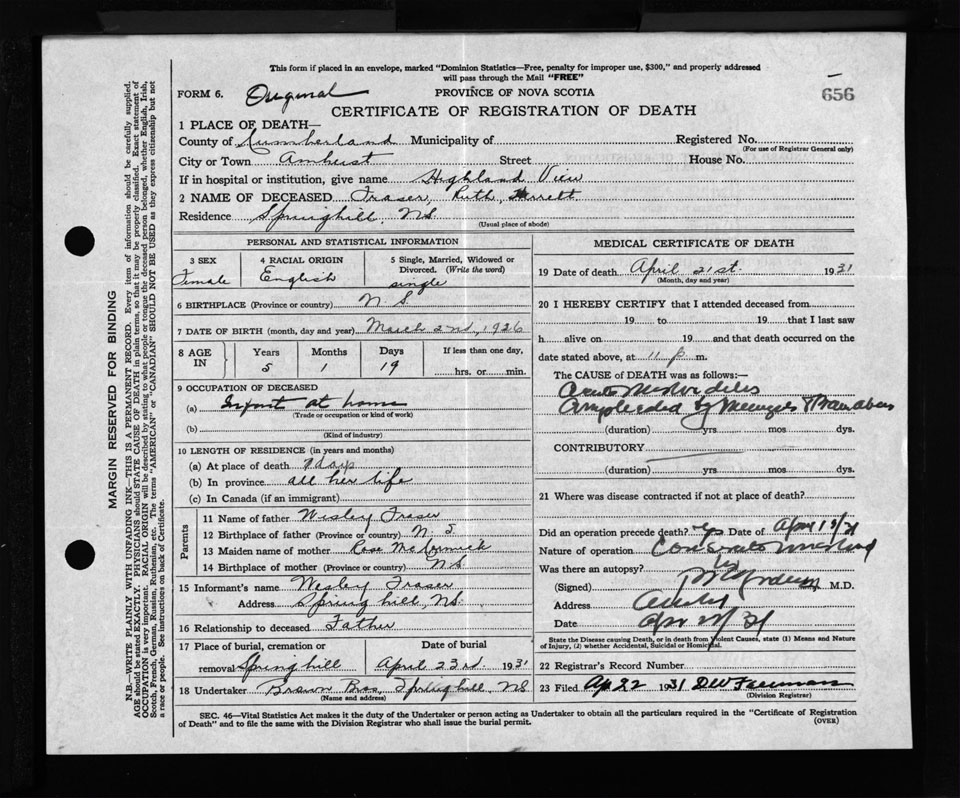 This form if placed in an envelope, marked "Dominion Statistics—Free, penalty for improper use, $300," and properly addressed
will pass through the Mail "FREE"
FORM 6. Original PROVINCE OF NOVA SCOTIA 656
CERTIFICATE OF REGISTRATION OF DEATH
1 PLACE OF DEATH—
County of Cumberland Municipality of Registered No.
(For use of Registrar General only)
City or Town Amherst Street House No.
If in hospital or institution, give name Highland View
2 NAME OF DECEASED Fraser, Ruth
Residence Springhill, N.S.
(Usual place of abode)
PERSONAL AND STATISTICAL INFORMATION
3 SEX 4 RACIAL ORIGIN 5 Single, Married, Widowed or
Divorced. (Write the word)
Female English single
6 BIRTHPLACE (Province or country) N.S.
7 DATE OF BIRTH (month, day and year) March 2nd, 1926
8 AGE IN Years Months Days If less than one day,
5 1 19 hrs. or min.
9 OCCUPATION OF DECEASED
(a) Infant at home
(Trade or occupation or kind of work)
(b)
(Kind of industry)
10 LENGTH OF RESIDENCE (in years and months)
(a) At place of death 7 days
(b) In province all her life
(c) In Canada (if an immigrant)
Parents
11 Name of father Wesley Fraser
12 Birthplace of father (Province or country) N S
13 Maiden name of mother Rose McCormick
14 Birthplace of mother (Province or country) N.S.
15 Informant's name Wesley Fraser
Address Spring hill, N.S.
16 Relationship to deceased Father
17 Place of burial, cremation or Date of burial
removal Springhill April 23rd 1931
18 Undertaker Brown Bros, Springhill NS
(Name and address)
MEDICAL CERTIFICATE OF DEATH
19 Date of death April 21st. 1931
(Month, day and year)
20 I HEREBY CERTIFY that I attended deceased from
19 to 19 that I last saw
h alive on 19 and that death occurred on the
date stated above, at 11 p m.
The CAUSE of DEATH was as follows:—
Acute Mastoiditis
by
(duration) yrs mos dys.
CONTRIBUTORY
(duration) yrs mos dys.
21 Where was disease contracted if not at place of death?
Did an operation precede death? yes Date of
Nature of operation
Was there an autopsy?
(Signed) M.D.
Address
Date
State the Disease causing Death, or in death from Violent Causes, state (1) Means and Nature
of Injury, (2) whether Accidental, Suicidal or Homicidal.
22 Registrar's Record Number
23 Filed Ap 22 1931 DW Freeman
(Division Registrar)
SEC. 46—Vital Statistics Act makes it the duty of the Undertaker or person acting as Undertaker to obtain all the particulars required in the "Certificate of Registration
of Death" and to file the same with the Division Registrar who shall issue the burial permit. (OVER)
MARGIN RESERVED FOR BINDING
N.B.—WRITE PLAINLY WITH UNFADING INK—THIS IS A PERMANENT RECORD. Every item of information should be carefully supplied.
AGE should be stated EXACTLY. PHYSICIANS should STATE CAUSE OF DEATH in plain terms, so that it may be properly classified. Exact statement of
OCCUPATION is very important. RACIAL ORIGIN will be described by stating to what people or tongue the deceased person belonged, whether English, Irish,
Scotch, French, German, Russian, Ruthenian, etc. The terms "AMERICAN" or "CANADIAN" SHOULD NOT BE USED as they express citizenship but not
a race or people. See instructions on back of Certificate.